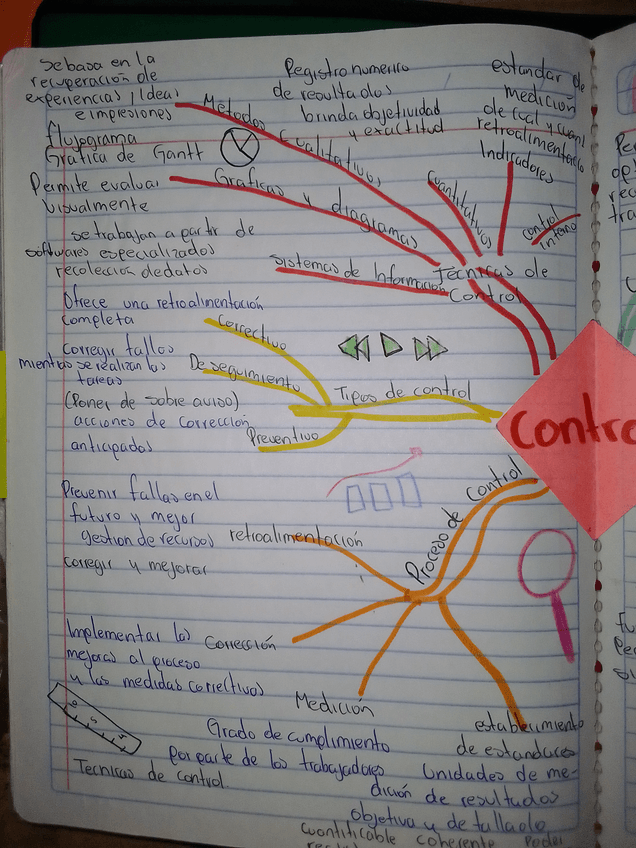 se basa en la
recuperación de
experiencias, Ideas
e impresiones
Métodos Cualitativos
Registro numerico
de resultados
brinda objetividad
y exactitud
Cuantitativos
estandar de
medición
de cual y cuant
retroalimentación
Indicadores
control
interno
flujograma
Grafica de Gantt
Permite evaluar
visualmente
Graficas y diagramas
se trabajan a partir de
softwares especializados
recolección de datos
Sistemas de Información
Técnicas de
Control
Ofrece una retroalimentación
completa
Correctivo
corregir fallos
mientras se realizan las
tareas
De seguimiento
Tipos de control
(Poner de sobre aviso)
acciones de corrección
anticipados
Preventivo
Contro
Proceso de control
Prevenir fallas en el
futuro y mejor
gestion de recursos
retroalimentación
corregir y mejorar
Implementar las
mejoras al proceso
y las medidas correctivas
Corrección
Medición
Grado de cumplimiento
por parte de los trabajadores
Tecnicas de control.
establecimiento
de estandares
Unidades de me-
dición de resultados
objetiva y detallado
cuantificable coherente Poder